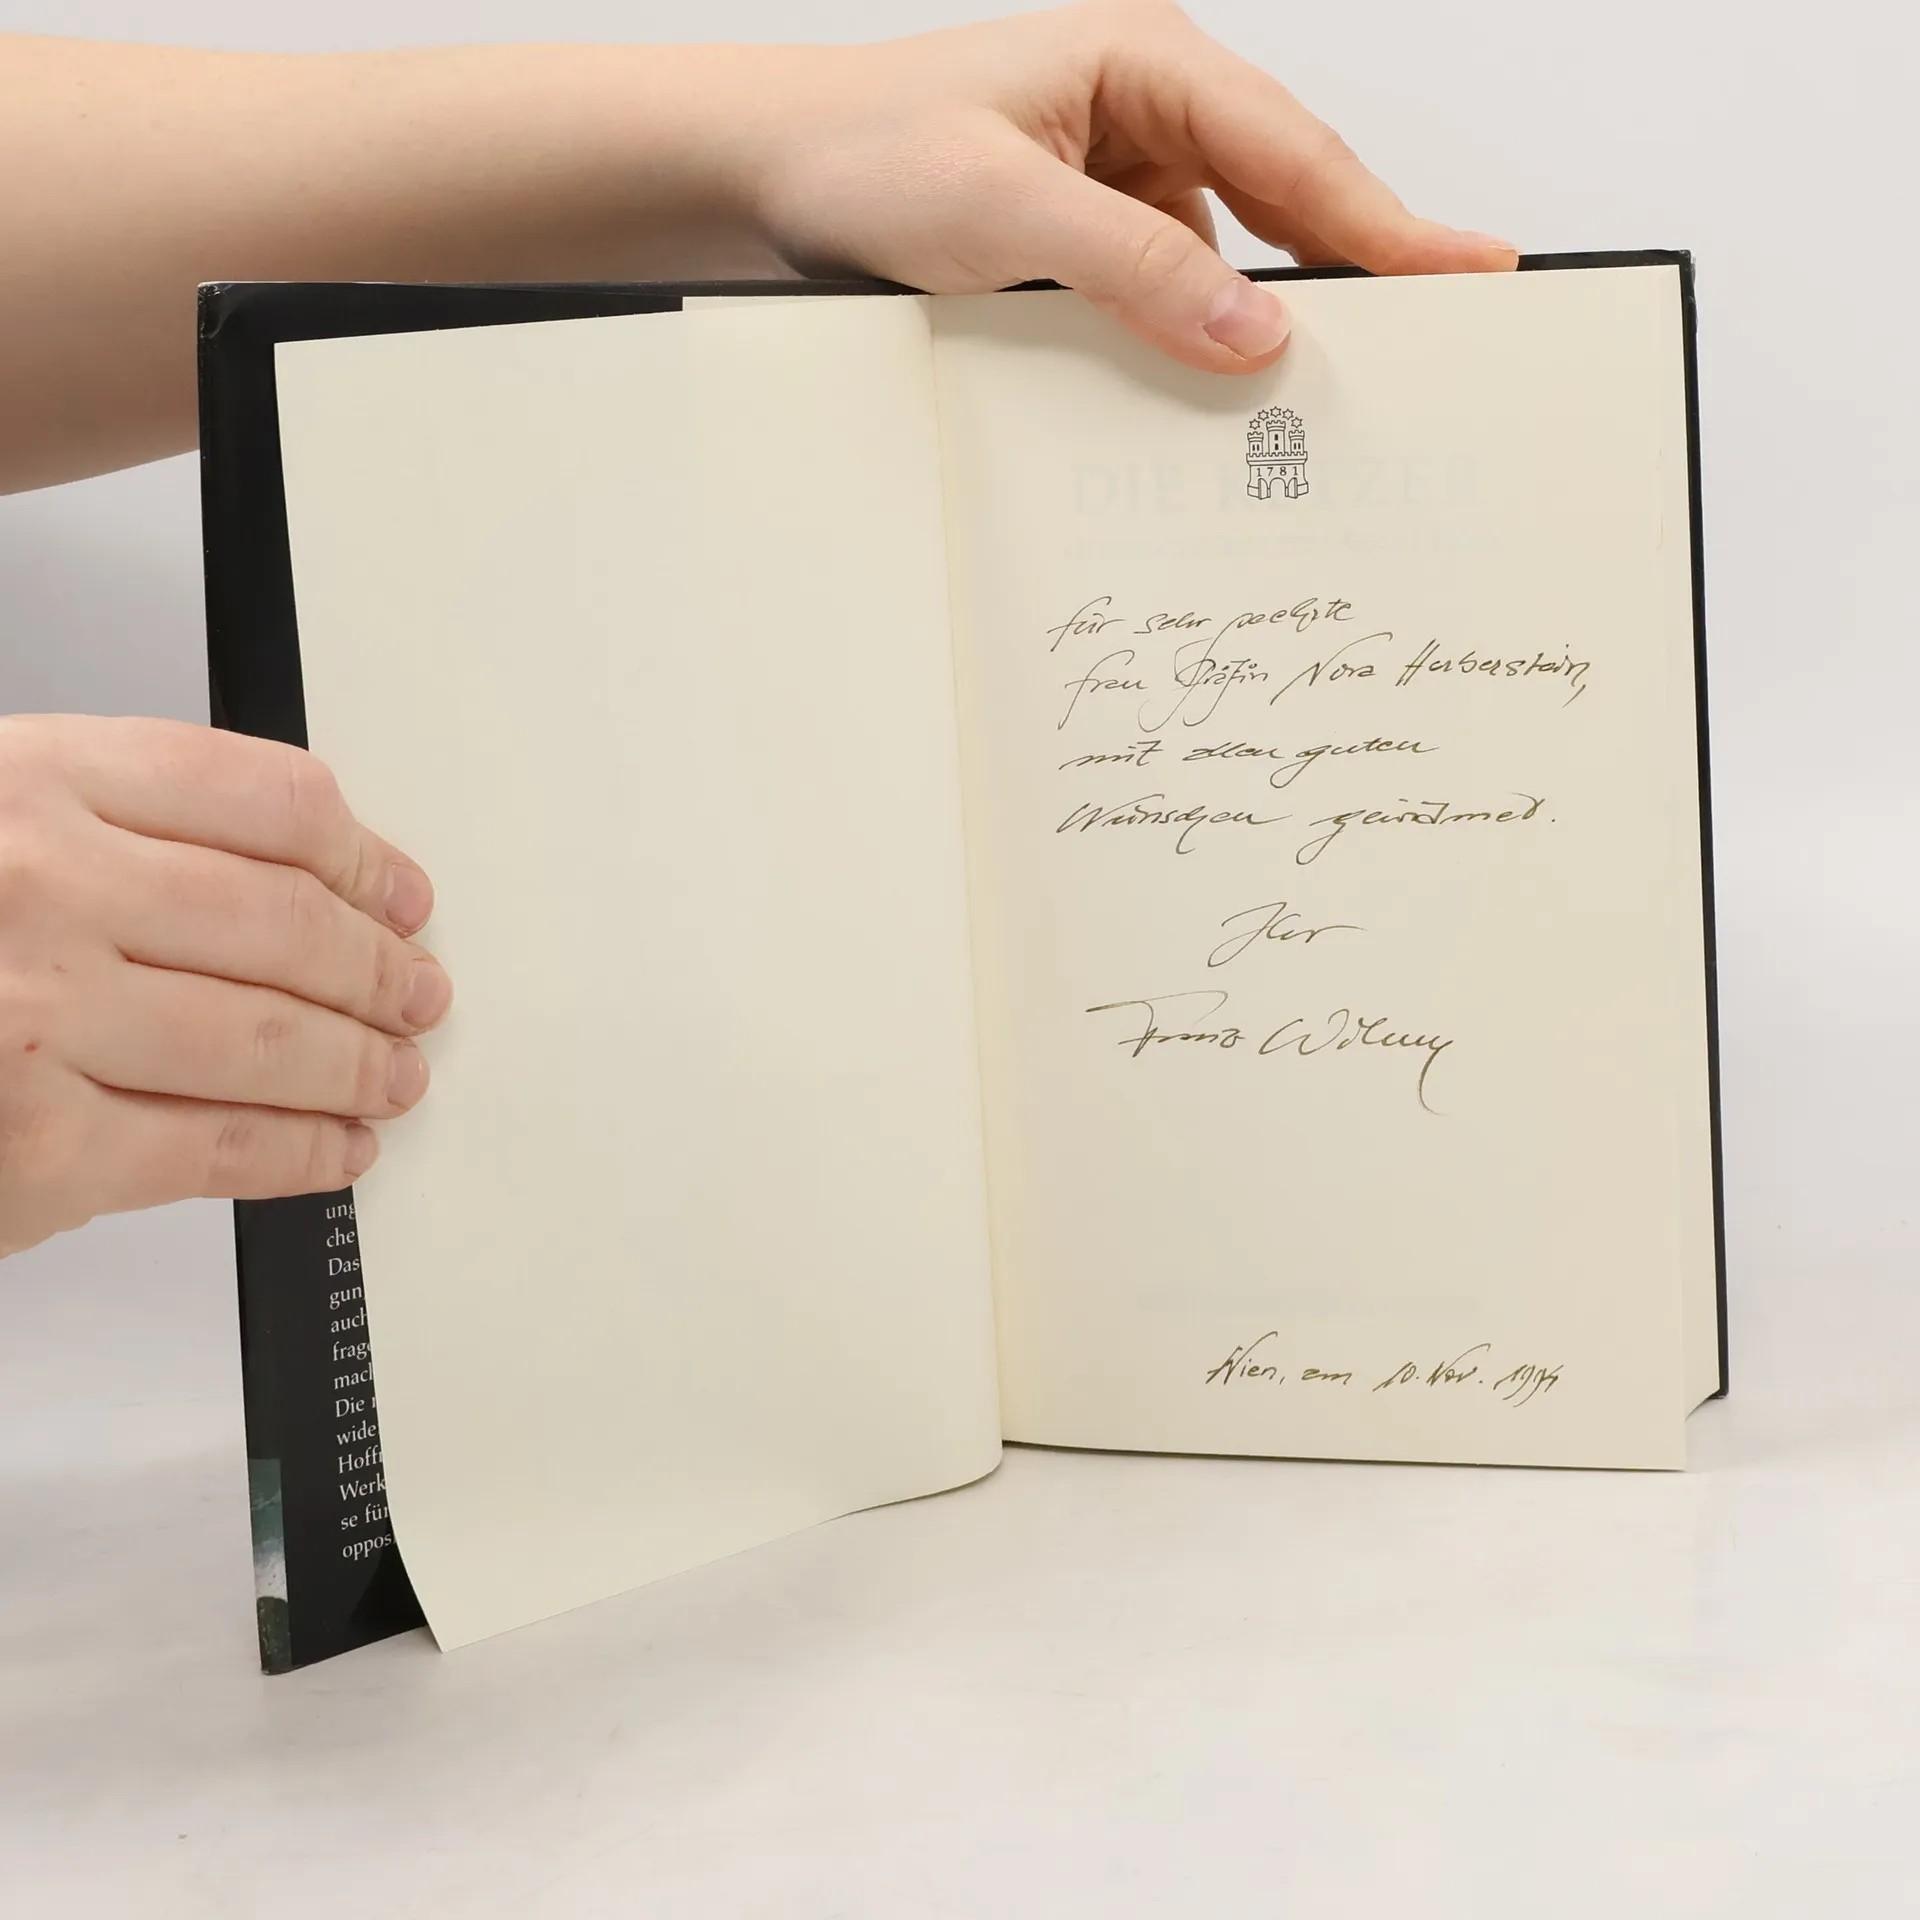 1781
für sehr geehrte
Frau Gräfin Nora Herberstein,
mit allen guten
Wünschen gewidmet.
Ihr
Franz
Wien, am 10. Nov. 1994
ung
che
Das
gun
auch
frage
mach
Die
wide
Hoff
Werk
se für
oppos